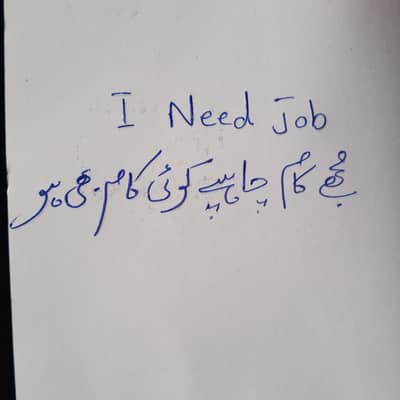 I Need Job
مجھے کام چاہیے کوئی کام بھی ہو